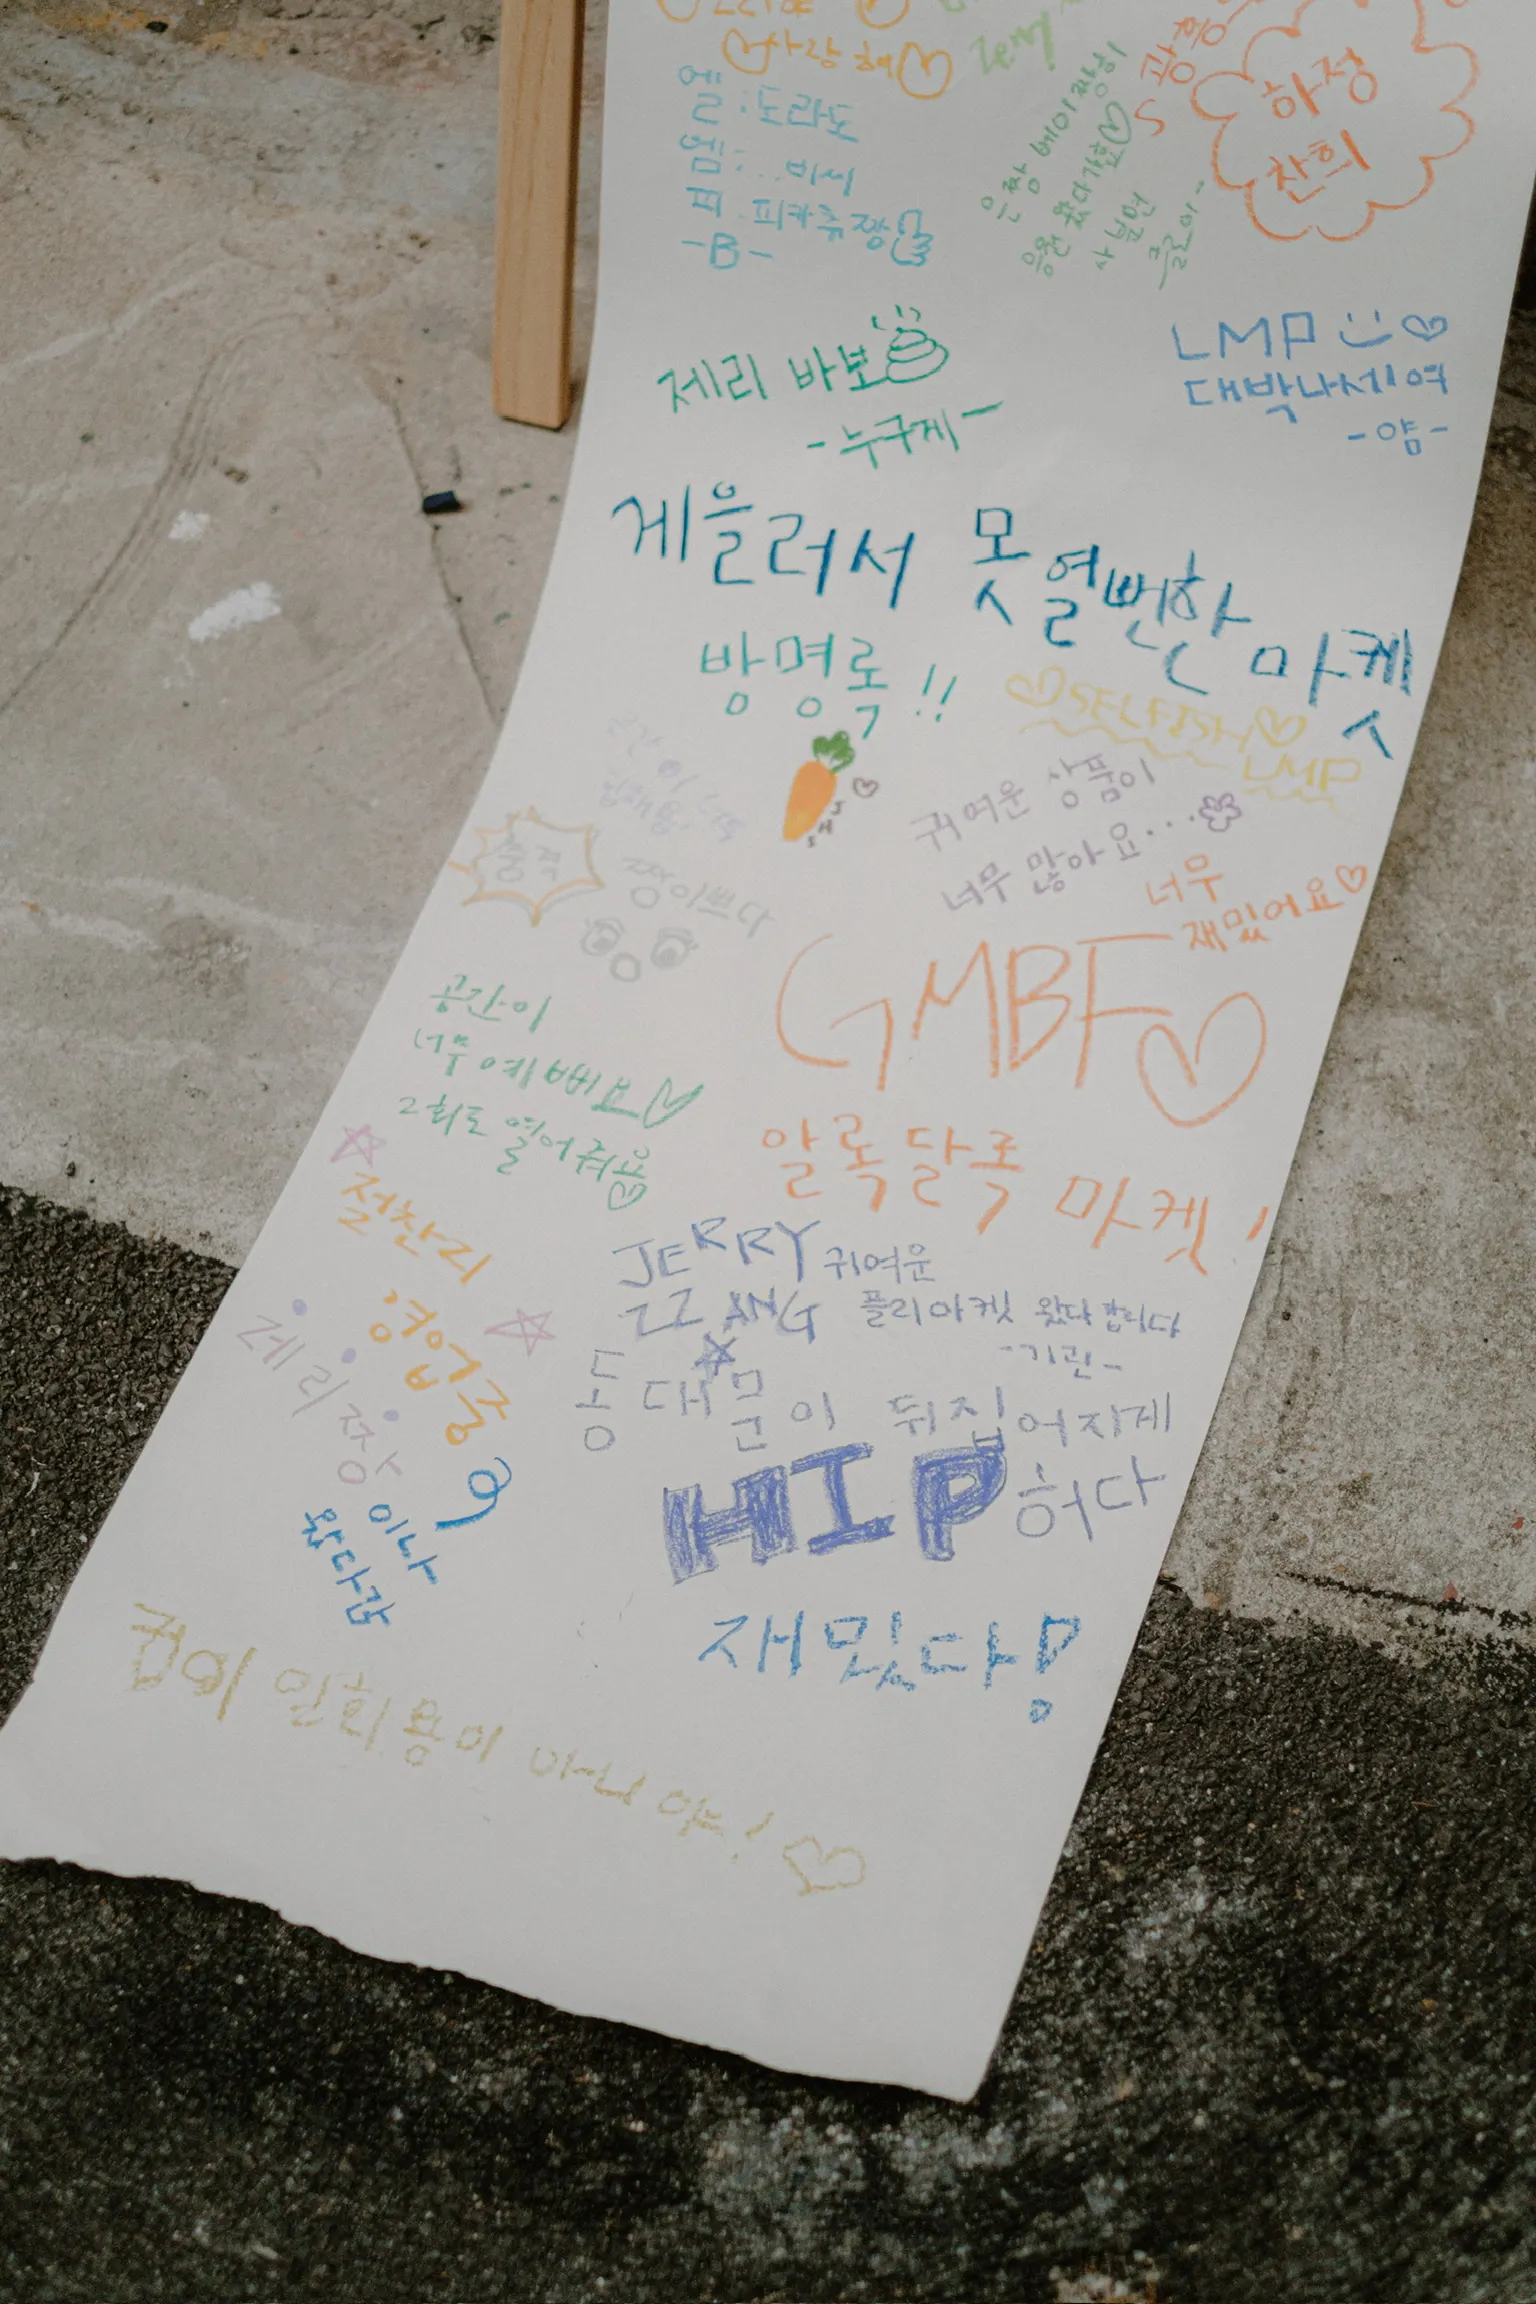 사랑해
엘:도라도
피:피카츄짱
-B-
하정
찬희
제리 바보
-누구게-
LMP
대박나세여
-얌-
게을러서 못열뻔한 마켓
방명록!!
SELFISH
LMP
귀여운 상품이
너무 많아요...
너무
재밌어요
충격
짱이쁘다
GMBF
공간이
너무 예뻐요
2회도 열어줘용
알록달록 마켓!
절찬리
영업중
JERRY
ZZANG
귀여운
플리마켓 왔다갑니다
제리짱
동대문이 뒤집어지게
HIP 허다
이나
왔다감
재밌다!
꿈이 일회용이 아니야!